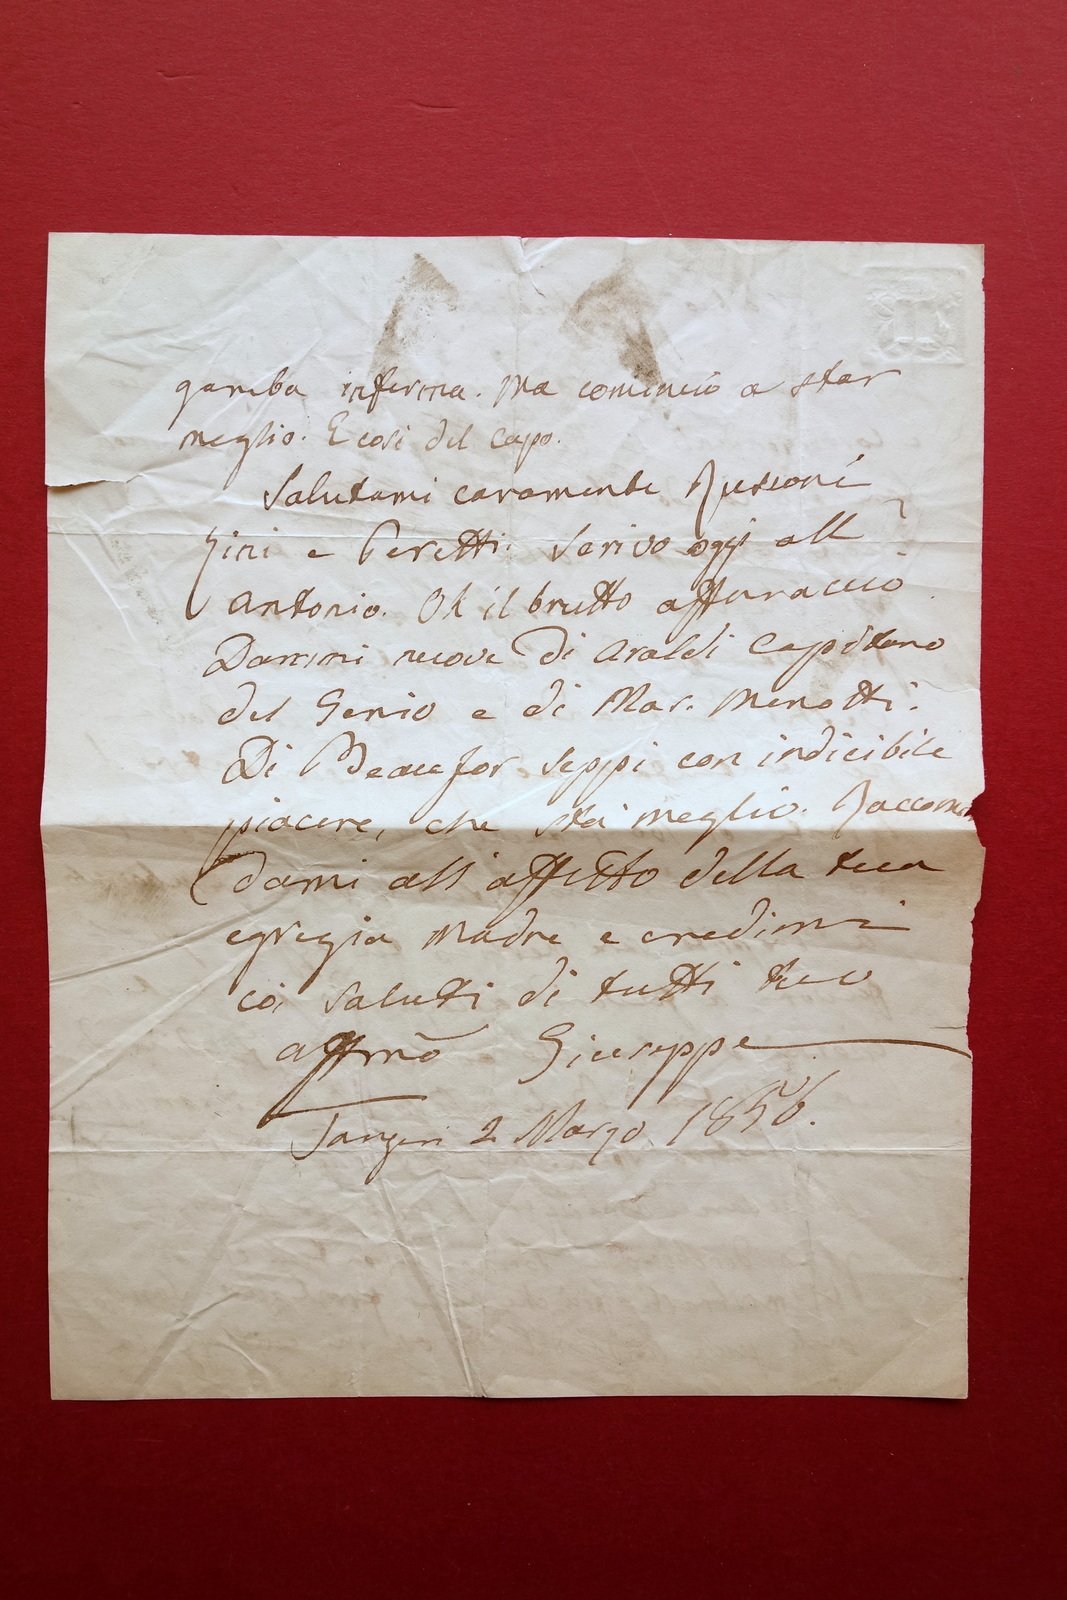 gamba inferma. Ma comincio a star
meglio. E così del capo.
Salutami caramente
Gini e Peretti. Scrivo oggi all
Antonio. Oh il brutto affaraccio
Dammi nuove di Araldi Capitano
del Genio e di Mar. Menotti.
Di Beaufor seppi con indicibile
piacere, che sta meglio. Raccoman
dami all affetto della tua
egregia Madre e credimi
coi saluti di tutti tuo
affmo Giuseppe
2 Marzo 1856.